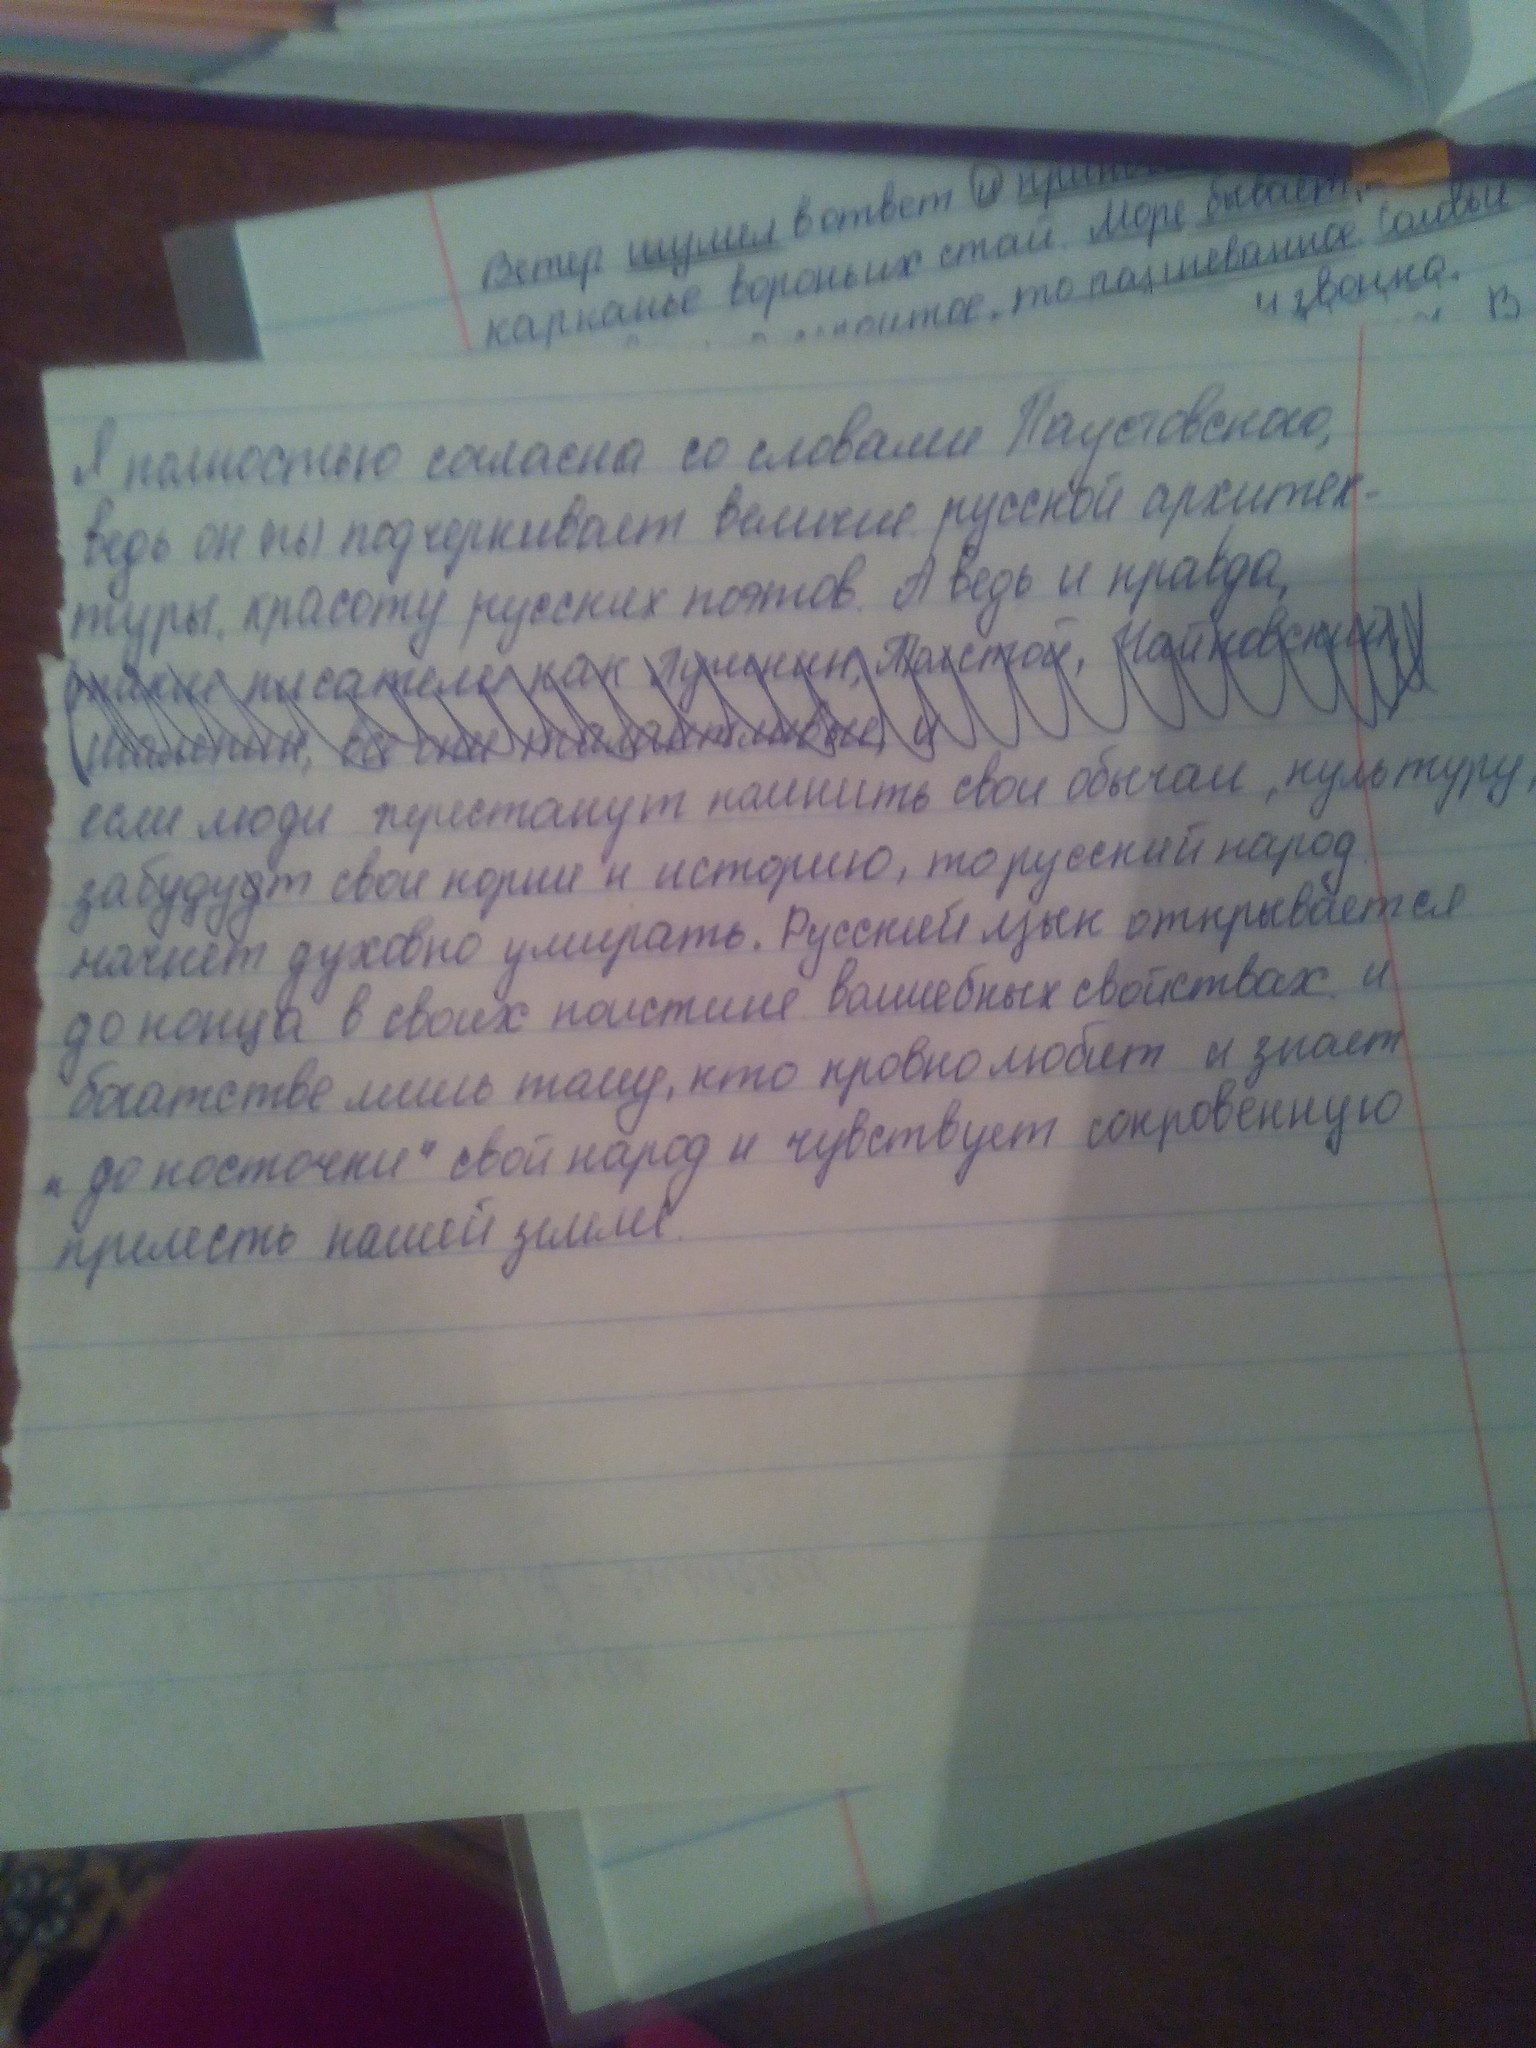 Ветер шумел в ответ и
карканье вороньих стай. Море бывает,
то
и звонко.
В
Я полностью согласна со словами Паустовского,
ведь он ты подчеркивает величие русской архитек-
туры, красоту русских поэтов. А ведь и правда,
такие писатели как Пушкин, Толстой, Чайковский,
все они талантливые, и
если люди перестанут помнить свои обычаи, культуру,
забудут свои корни и историю, то русский народ
начнет духовно умирать. Русский язык открывается
до конца в своих поистине волшебных свойствах и
богатстве лишь тому, кто кровно любит и знает
"до косточки" свой народ и чувствует сокровенную
прелесть нашей земли.